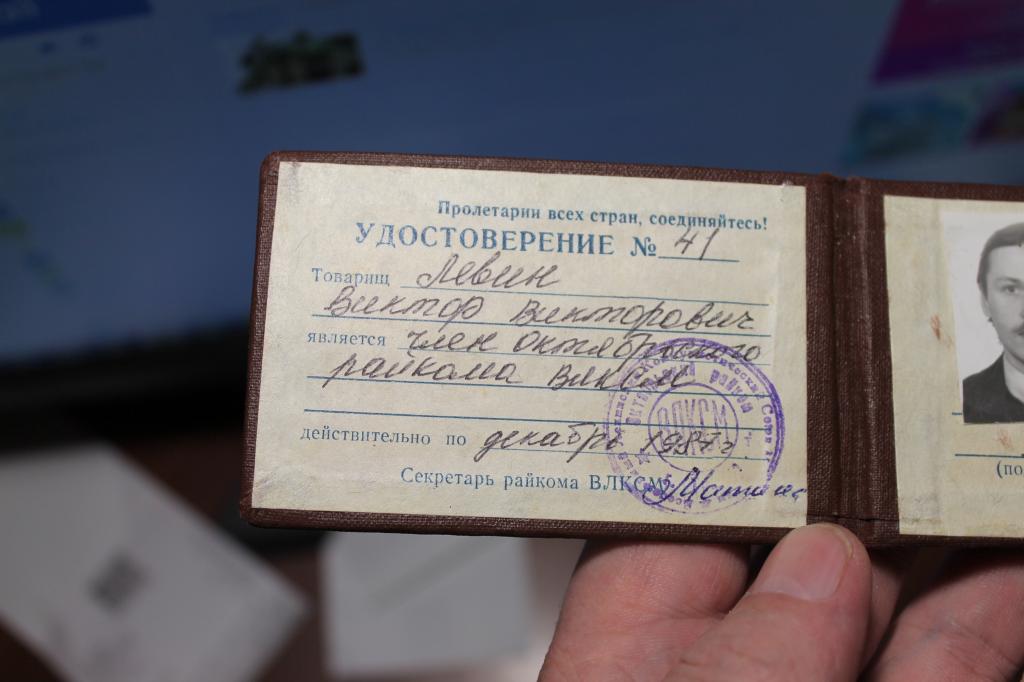 Пролетарии всех стран, соединяйтесь!
УДОСТОВЕРЕНИЕ № 41
Товарищ Левин
Виктор Викторович
является член Октябрьского
райкома ВЛКСМ
действительно по декабрь 1987 г.
Секретарь райкома ВЛКСМ
райком
ВЛКСМ
(по